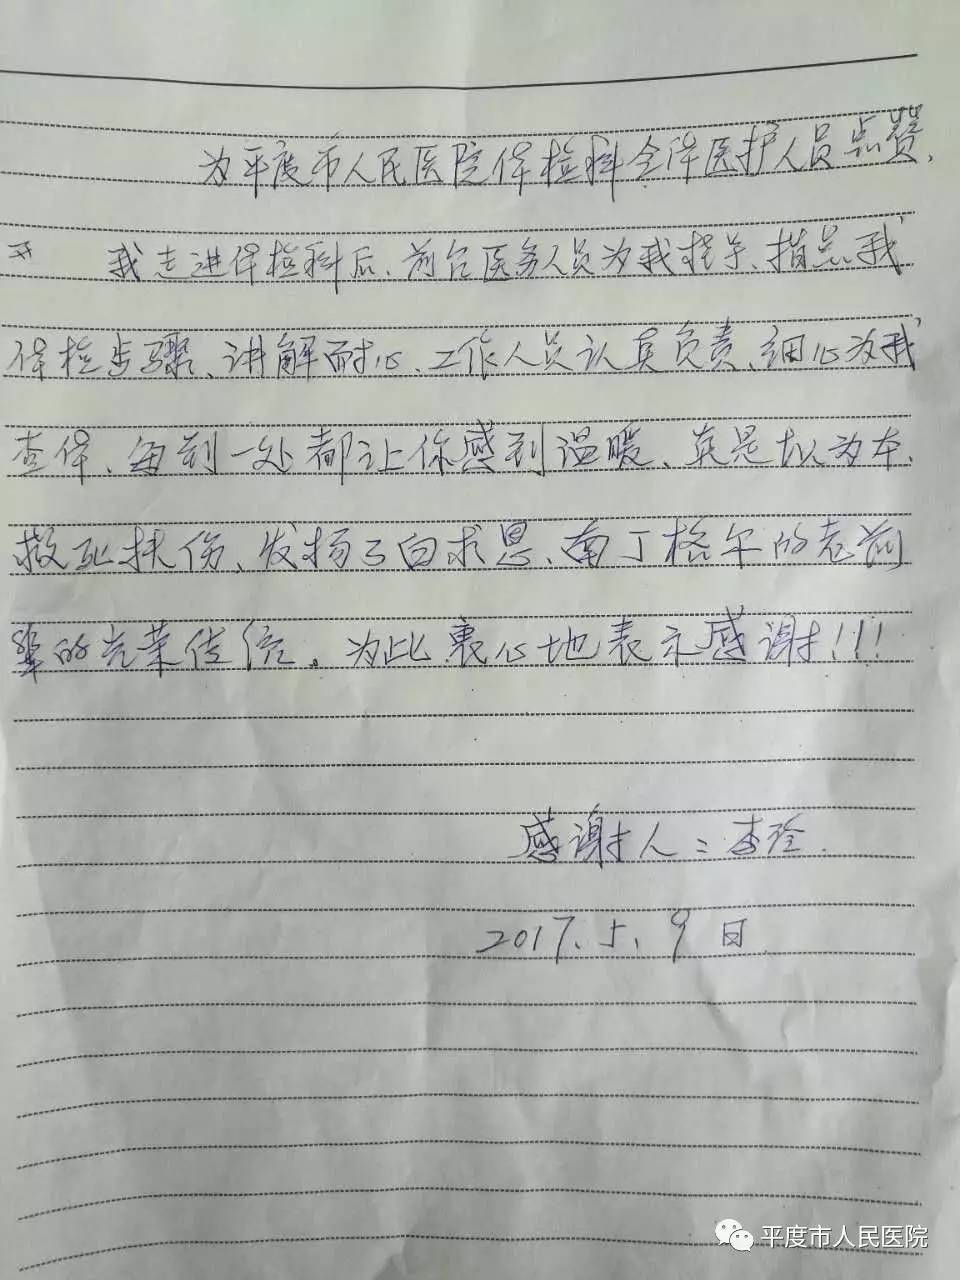 为平度市人民医院体检科全体医护人员点赞、
我走进体检科后、前台医务人员为我指导、指点我
体检步骤、讲解耐心、工作人员认真负责、细心为我
查体、每到一处都让你感到温暖、真是以为本、
救死扶伤、发扬了白求恩、南丁格尔的老前
辈的光荣传统。为此衷心地表示感谢!!!
感谢人:李玲.
2017.5.9日
平度市人民医院